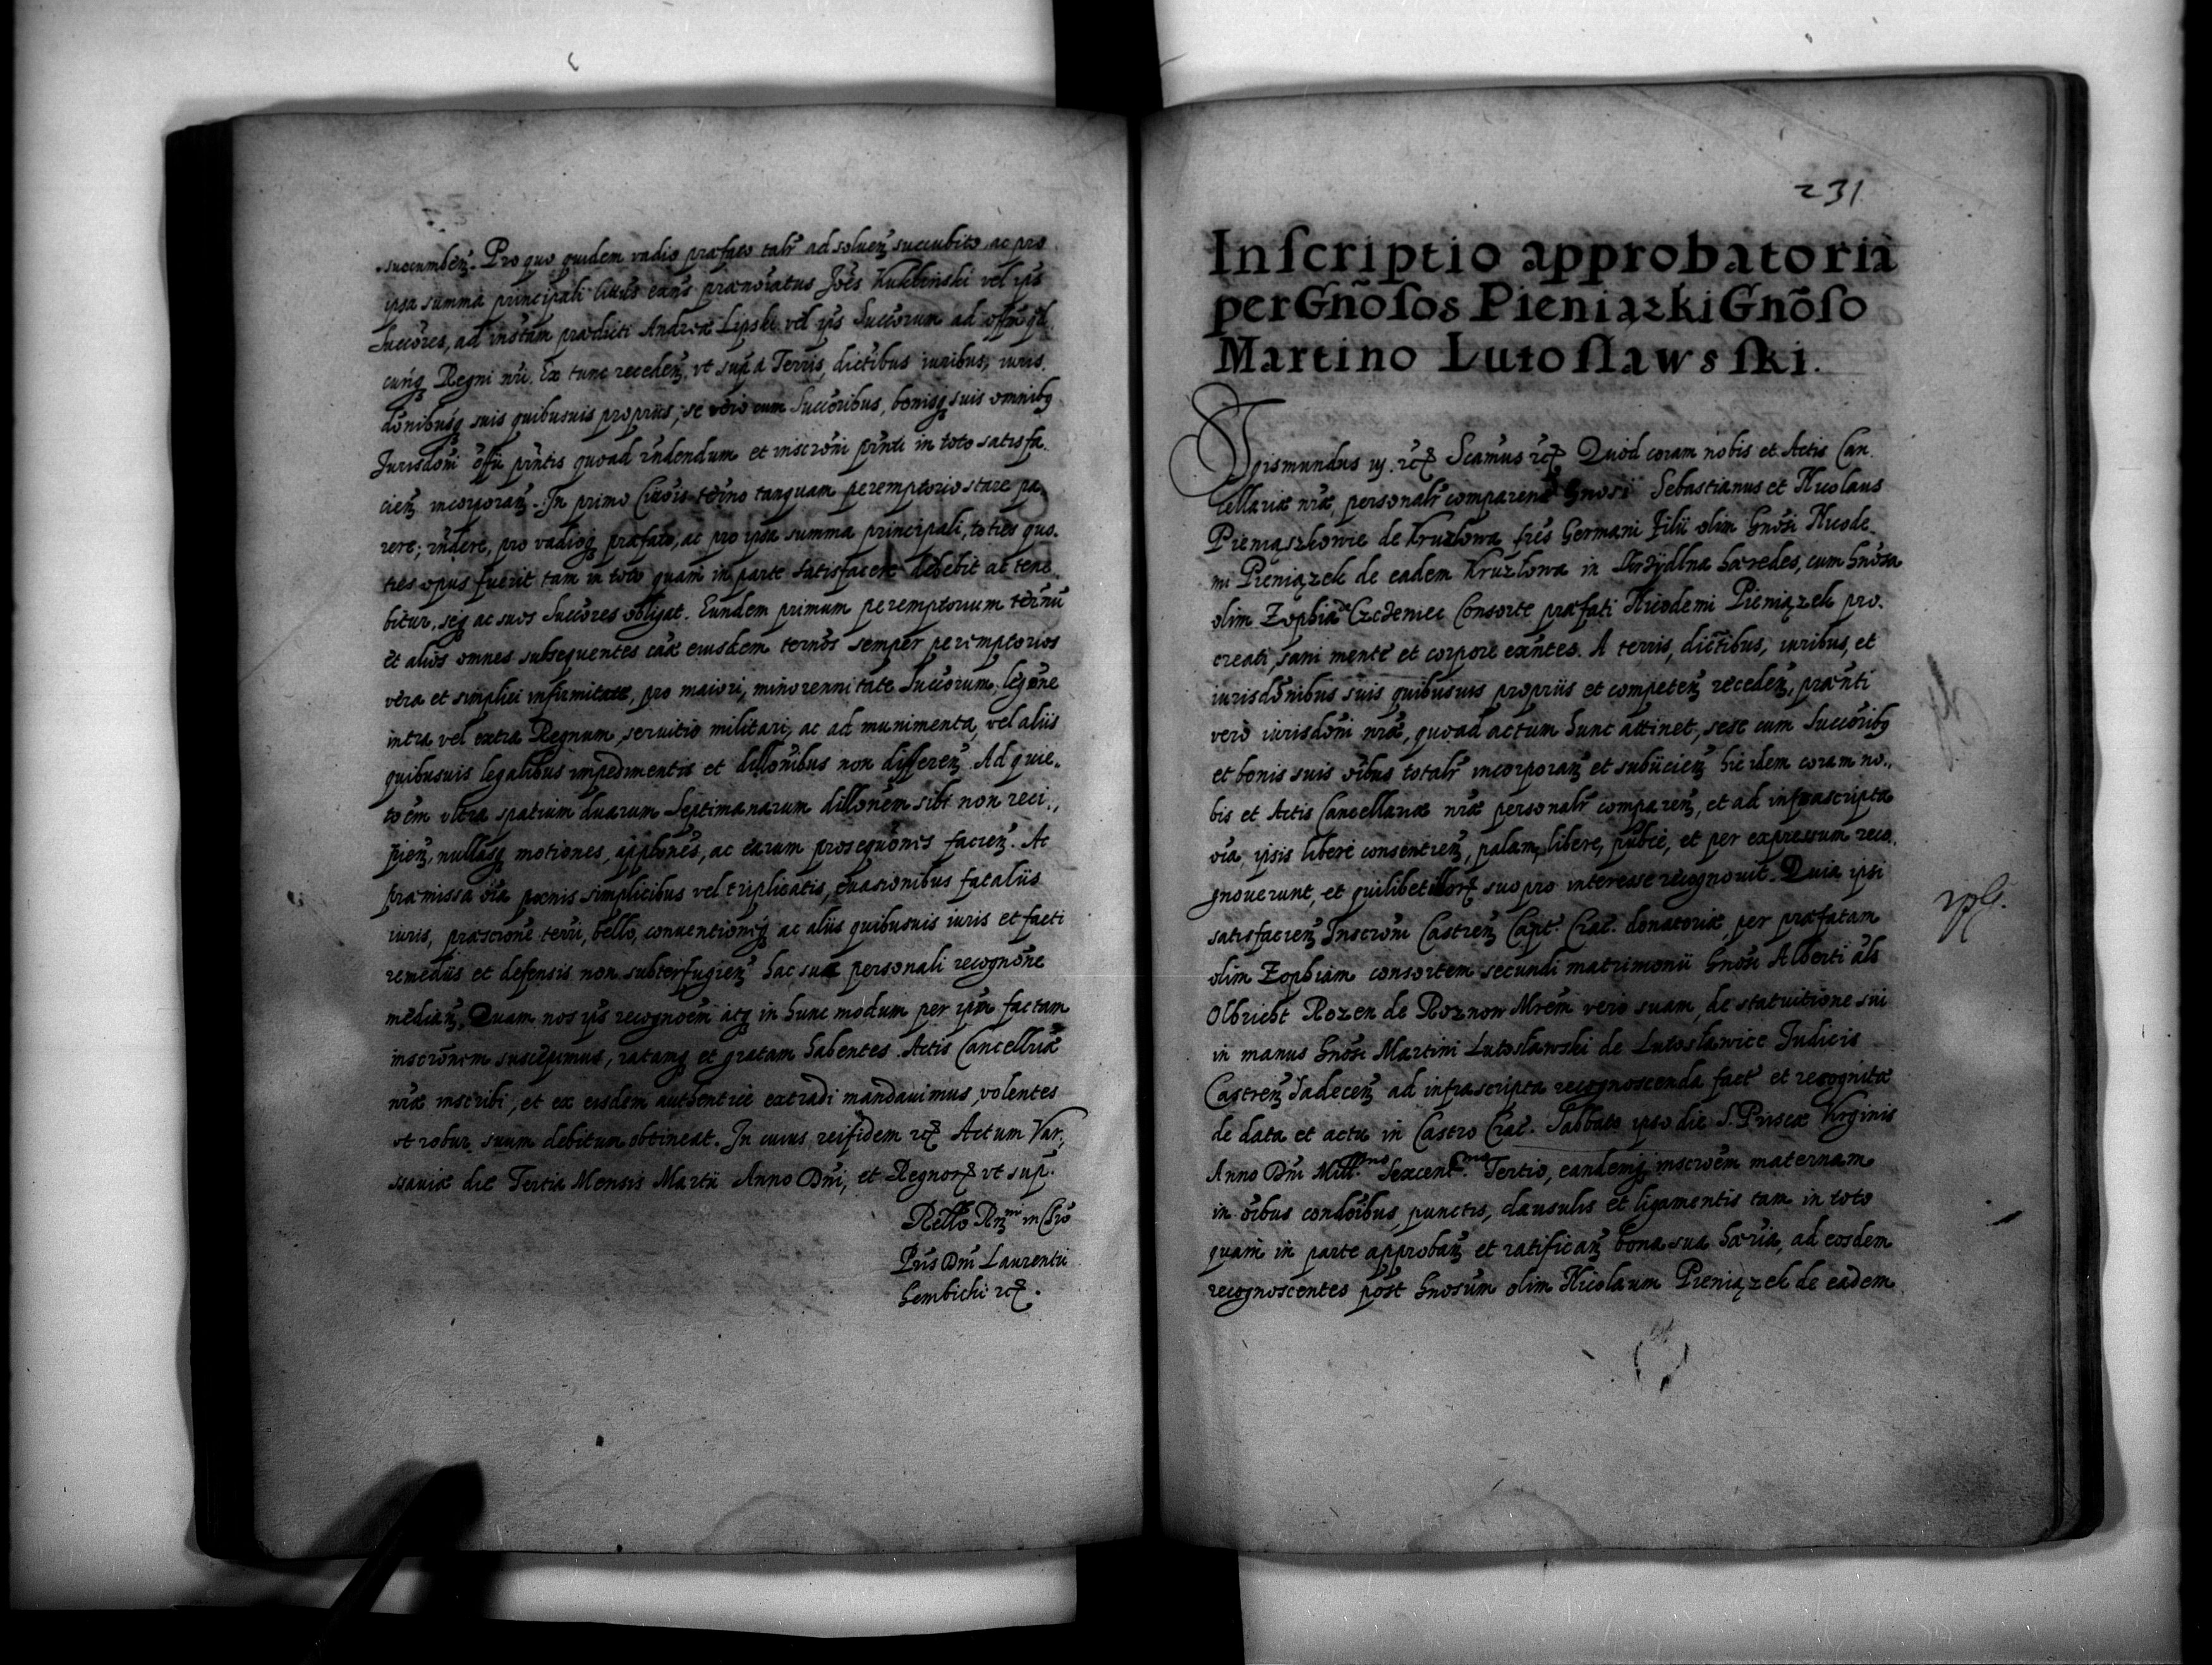 succumbeñ. Pro quo quidem vadio præfato talr̃ ad solueñ succubito, ac pro
ipsa summa principali citats exñs prænotatus Joẽs Kuklinski vel ips
Succores, ad instam prædicti Andreæ Lipski vel ips Succorum ad offm qd
cunq3 Regni nri. Ex tunc recedeñ, vt sup̃ a Terris, dictibus iuribus, iuris
dõnibusq3 suis quibusuis proprijs, se vero cum Succoribus, bonisq3 suis omnibq3
Jurisdõni offii pñtis quoad rñdendum et inscrõni pñti in toto satisfa
cieñ incorporañ. In primo Citõis termo tanquam peremptorio stare pa
rere, rñdere, pro vadioq3 præfato, ac pro ipsa summa principali, toties quo-
ties opus fuerit tam in toto quam in parte satisfacere debebit ac tene
bitur, seq3 ac suos Succores obligat. Eundem primum peremptorium ternũ
et alios omnes subsequentes cãæ eiusdem termos semper peremptorios
vera et simplici infirmitate, pro maiori, minorennitate Succorum, legõne
intra vel extra Regnum, seruitio militari, ac ad munimenta, vel aliis
quibusuis legalibus impedimentis et dillonibus non differeñ. Ad quie-
toẽm vltra spatium duarum Septimanarum dillonem sibi non reci-
pieñ, nullasq3 motiones, applõnes, ac earum prosequõnes facieñ. Ac
præmissa oĩa pœnis simplicibus vel triplicatis, euasionibus fataliis
iuris, præscrione terri, bello, conuentioneq3 ac aliis quibusuis iuris et facti
remediis et defensis non subterfugieñ hac sua personali recognõne
mediañ. Quam nos ips recognoẽm atq3 in hunc modum per ipm factam
inscrõnem suscepimus, ratamq3 et gratam habentes. Actis Cancellriæ
nræ inscribi, et ex eisdem authentice extradi mandauimus, volentes
vt robur suum debitum obtineat. In cuius rei fidem etc Actum Var-
sauiæ die Tertia Mensis Martii Anno Dñi, et Regnorꝝ vt sup̃.
Rello Rñmi in Chro
Pris Dñi Laurentii
Gembicki etc.
231
Inscriptio approbatoria
per Gñosos Pieniązki Gnõso
Martino Lutosławsski.
Sigismundus iij. etc Scamus etc Quod coram nobis et Actis Can
cellariæ nræ, personalr̃ comparens Gnosi Sebastianus et Nicolaus
Pieniąszkowie de Kruzlowa frẽs Germani Filii olim Gnosi Nicode
mi Pieniązek de eadem Kruzlowa in hæredes, cum Gnosa
olim Zophia de Czcheniec Consorte præfati Nicodemi Pieniązek pro-
creati, sani mente et corpore exñtes. A terris, dictibus, iuribus, et
iurisdõnibus suis quibusuis propriis et competeñ recedeñ, prænti
vero iurisdõni nræ, quoad actum hunc attinet, sese cum Succoribq3
et bonis suis oĩbus totalr̃ incorporañ et subiicieñ hic idem coram no-
bis et Actis Cancellariæ nræ personalr̃ compareñ, et ad infrascripta
oĩa, ipsis libere consentieñ, palam, libere, publce, et per expressum reco-
gnouerunt, et quilibet illorꝝ suo pro interesse recognouit. Quia ipsi
satisfacieñ Inscrõni Castreñ Capt. Crac. donatoriæ per præfatam
olim Zophiam consortem secundi matrimonii Gnosi Alberti als
Olbricht Rozen de Roznow Mrẽm vero suam, de statuitione sui
in manus Gnosi Martini Lutosławski de Lutosławice Judicis
Castreñ Sadeceñ ad infrascripta recognoscenda fact et recognitæ
de data et actu in Castro Crac. Sabbato ipso die S. Priscæ Virginis
Anno Dñi Mill.mo Sexcent.mo Tertio, eandemq3 inscroẽm maternam
in oĩbus condoĩbus, punctis, clausulis et ligamentis tam in toto
quam in parte approbañ et ratificañ bona sua hæria, ad eosdem
recognoscentes post Gnosum olim Nicolaum Pieniązek de eadem